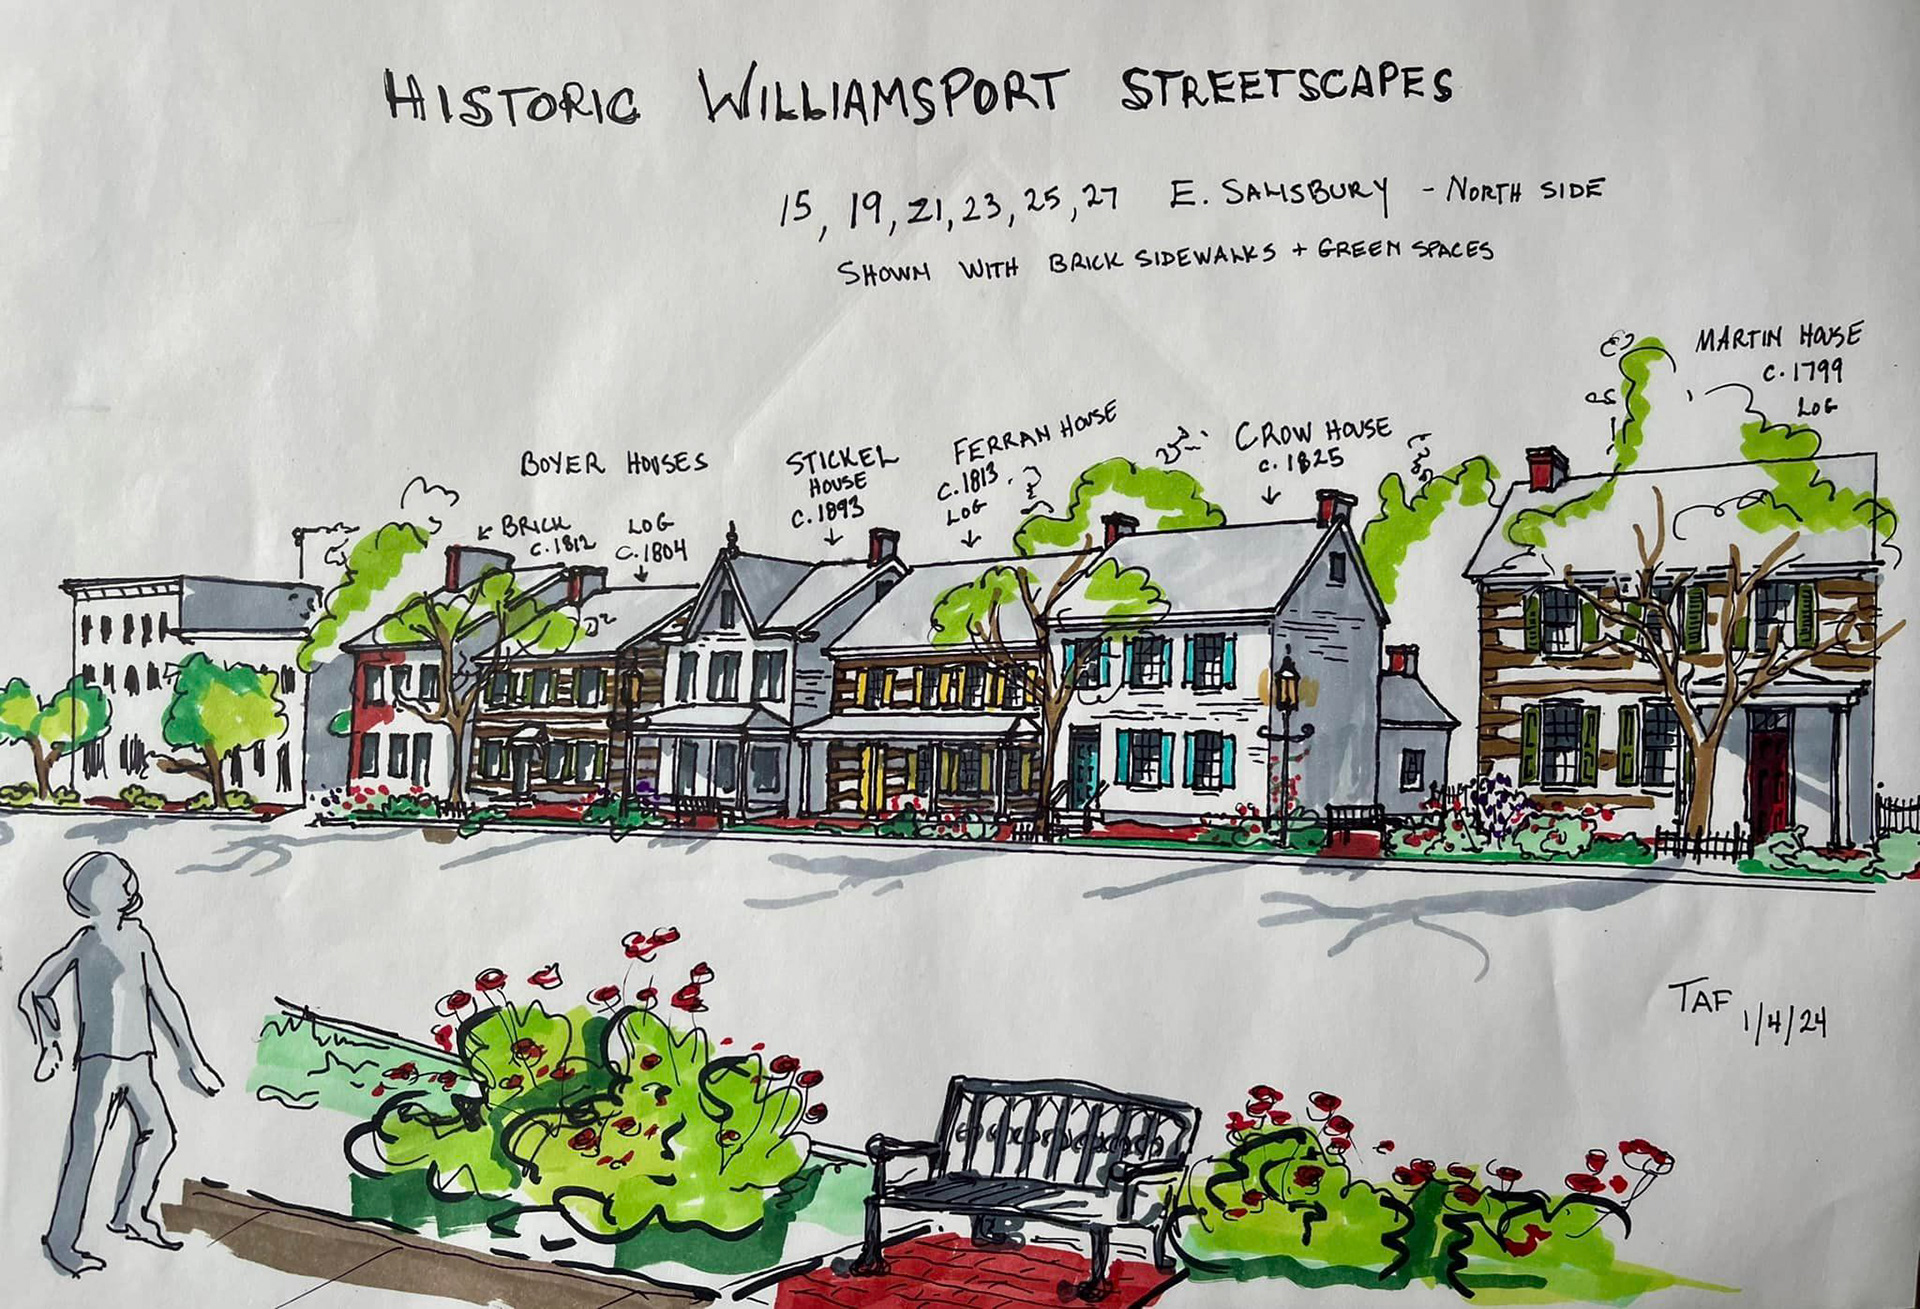 HISTORIC WILLIAMSPORT STREETSCAPES
15, 19, 21, 23, 25, 27 E. SALISBURY - NORTH SIDE
SHOWN WITH BRICK SIDEWALKS + GREEN SPACES
MARTIN HOUSE
c. 1799
LOG
CROW HOUSE
c. 1825
FERRAN HOUSE
c. 1813
LOG
STICKEL
HOUSE
c. 1893
BOYER HOUSES
BRICK
c. 1812
LOG
c. 1804
TAF 1/4/24